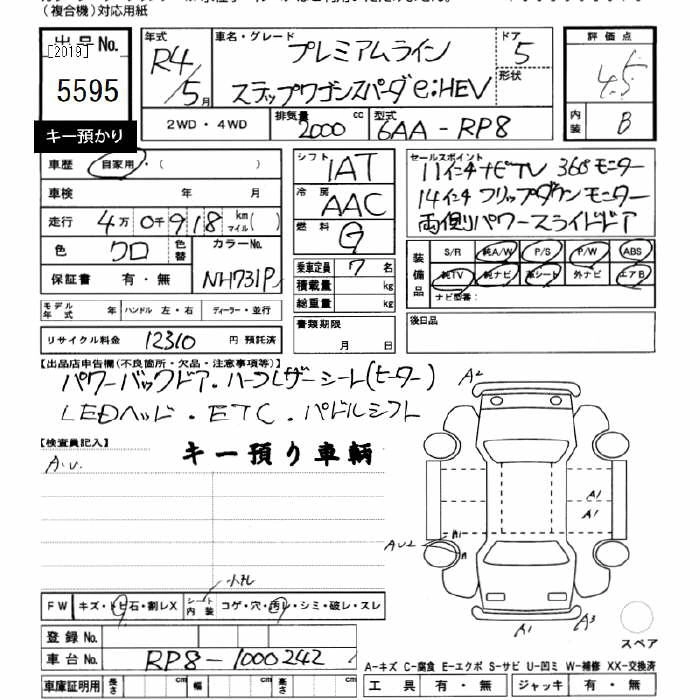 (複合機)対応用紙
出品No. [2019]
5595
キー預かり
年式 R4/5月
車名・グレード プレミアムライン
ステップワゴンスパーダe:HEV
ドア 5
形状
評価点 4.5
内装 B
2WD・4WD 排気量 2000 cc 型式 6AA-RP8
車歴 自家用・( )
車検 年 月
走行 4万0千918 km マイル( )
色 クロ 色替 カラーNo. NH731P
保証書 有・無
シフト IAT
冷房 AAC
燃料 G
乗車定員 7 名
積載量 kg
総重量 kg
セールスポイント
11インチナビTV 360°モニター
14インチフリップダウンモニター
両側パワースライドドア
装備品 S/R 純A/W P/S P/W ABS
純TV 純ナビ 革シート 外ナビ エアB
ナビ型番:
モデル年式 年 ハンドル 左・右 ディーラー・並行
リサイクル料金 12310 円 預託済
書類期限 月 日
後日品
【出品店申告欄(不良箇所・欠品・注意事項等)】
パワーバックドア・ハーフレザーシート(ヒーター)
LEDヘッド・ETC・パドルシフト
【検査員記入】
キー預り車輌
A.U.
A2
A1
A1
AU2
A1
A
A1
A3
スペア
小キズ
FW キズ・トビ石・割レX シート内装 コゲ・穴・汚レ・シミ・破レ・スレ
登録No.
車台No. RP8-1000242
車庫証明用 長さ cm 幅 cm 高さ cm
A-キズ C-腐食 E-エクボ S-サビ U-凹ミ W-補修 XX-交換済
工具 有・無 ジャッキ 有・無